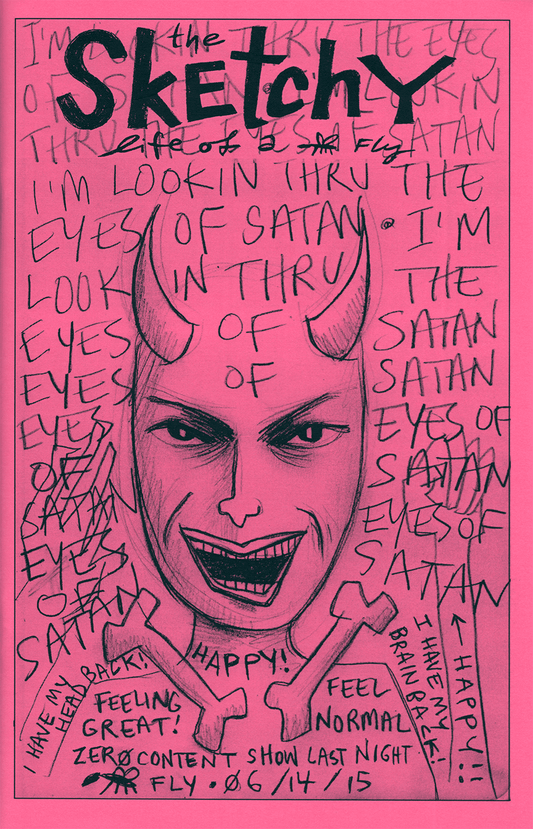 I'M LOOKIN THRU THE EYES
the
SketchY
OF SATAN • I'M LOOKIN
THRU THE EYES OF SATAN
life of a Fly
I'M LOOKIN THRU THE
EYES OF SATAN • I'M
LOOK IN THRU THE
EYES OF SATAN
EYES OF SATAN
EYES EYES OF
OF SATAN
SATAN EYES OF
EYES SATAN
OF
SATAN
I HAVE MY
HEAD BACK!
HAPPY!
FEELING
GREAT!
FEEL
NORMAL
I HAVE MY
BRAIN BACK!
← HAPPY!!
ZERØ CONTENT SHOW LAST NIGHT
FLY • Ø6/14/15